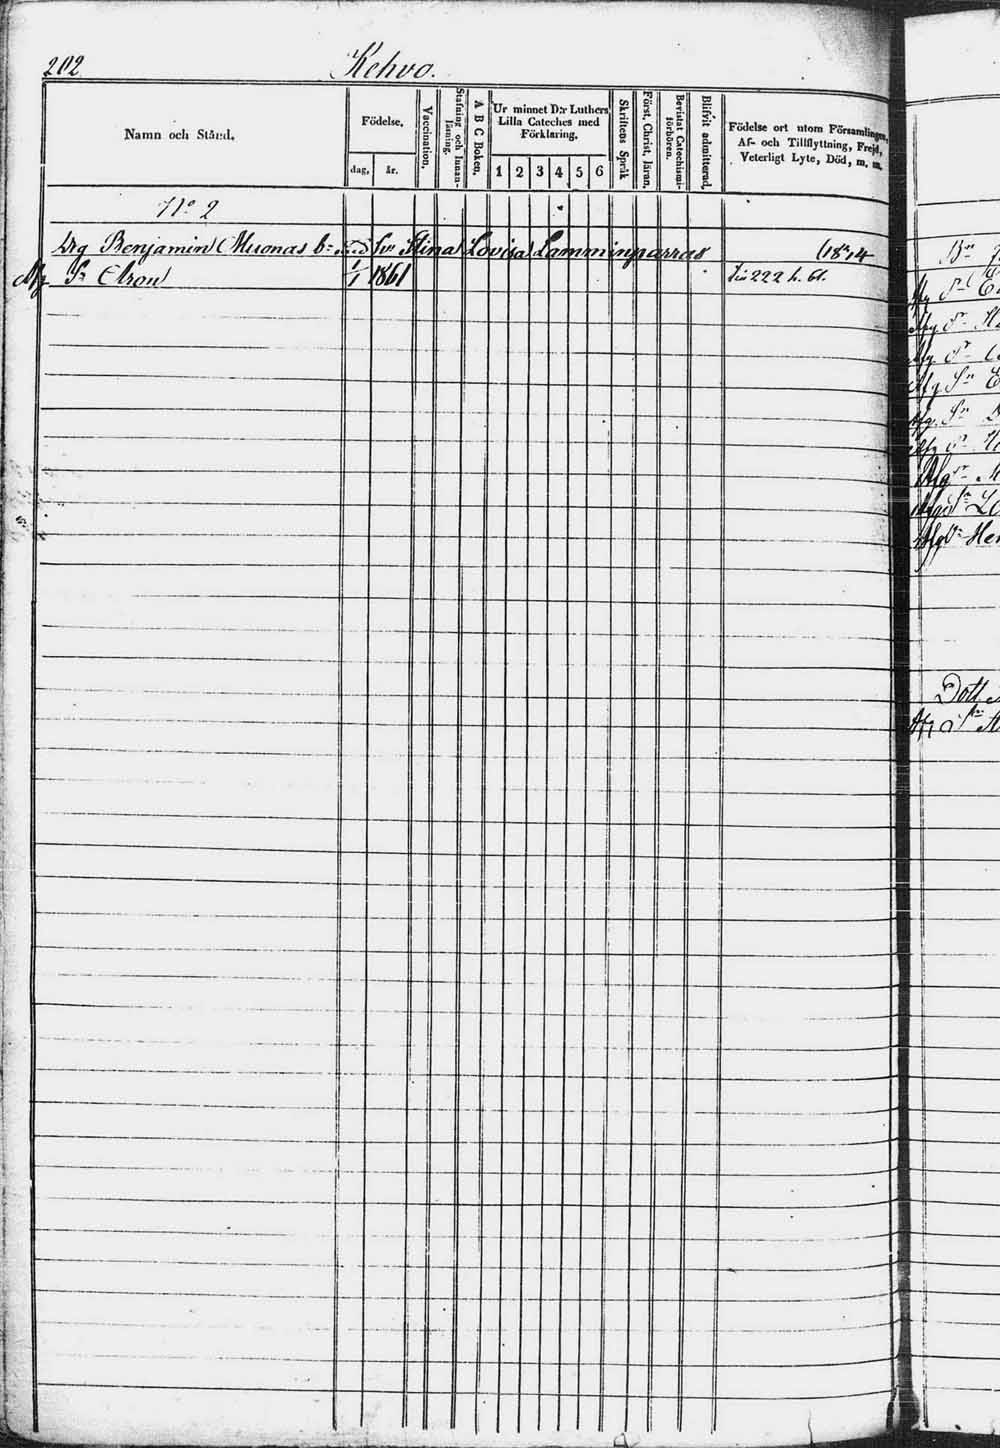 202 Kehvo.
Namn och Stånd.
Födelse,
dag, år.
Vaccination.
Stafning och Innan-läsning.
A B C Boken.
Ur minnet D:r Luthers
Lilla Cateches med
Förklaring,
1 2 3 4 5 6
Skriftens Språk
Först, Christ, läran,
Bevistat Catechismi-förhören.
Blifvit admitterad,
Födelse ort utom Församlingen,
Af- och Tillflyttning, Frejd,
Veterligt Lyte, Död, m. m.
No 2
Drg Benjamin Muonas b: med Stina Lovisa Lamminparras
Sn Aron 1/1 1861 222 h. 61.